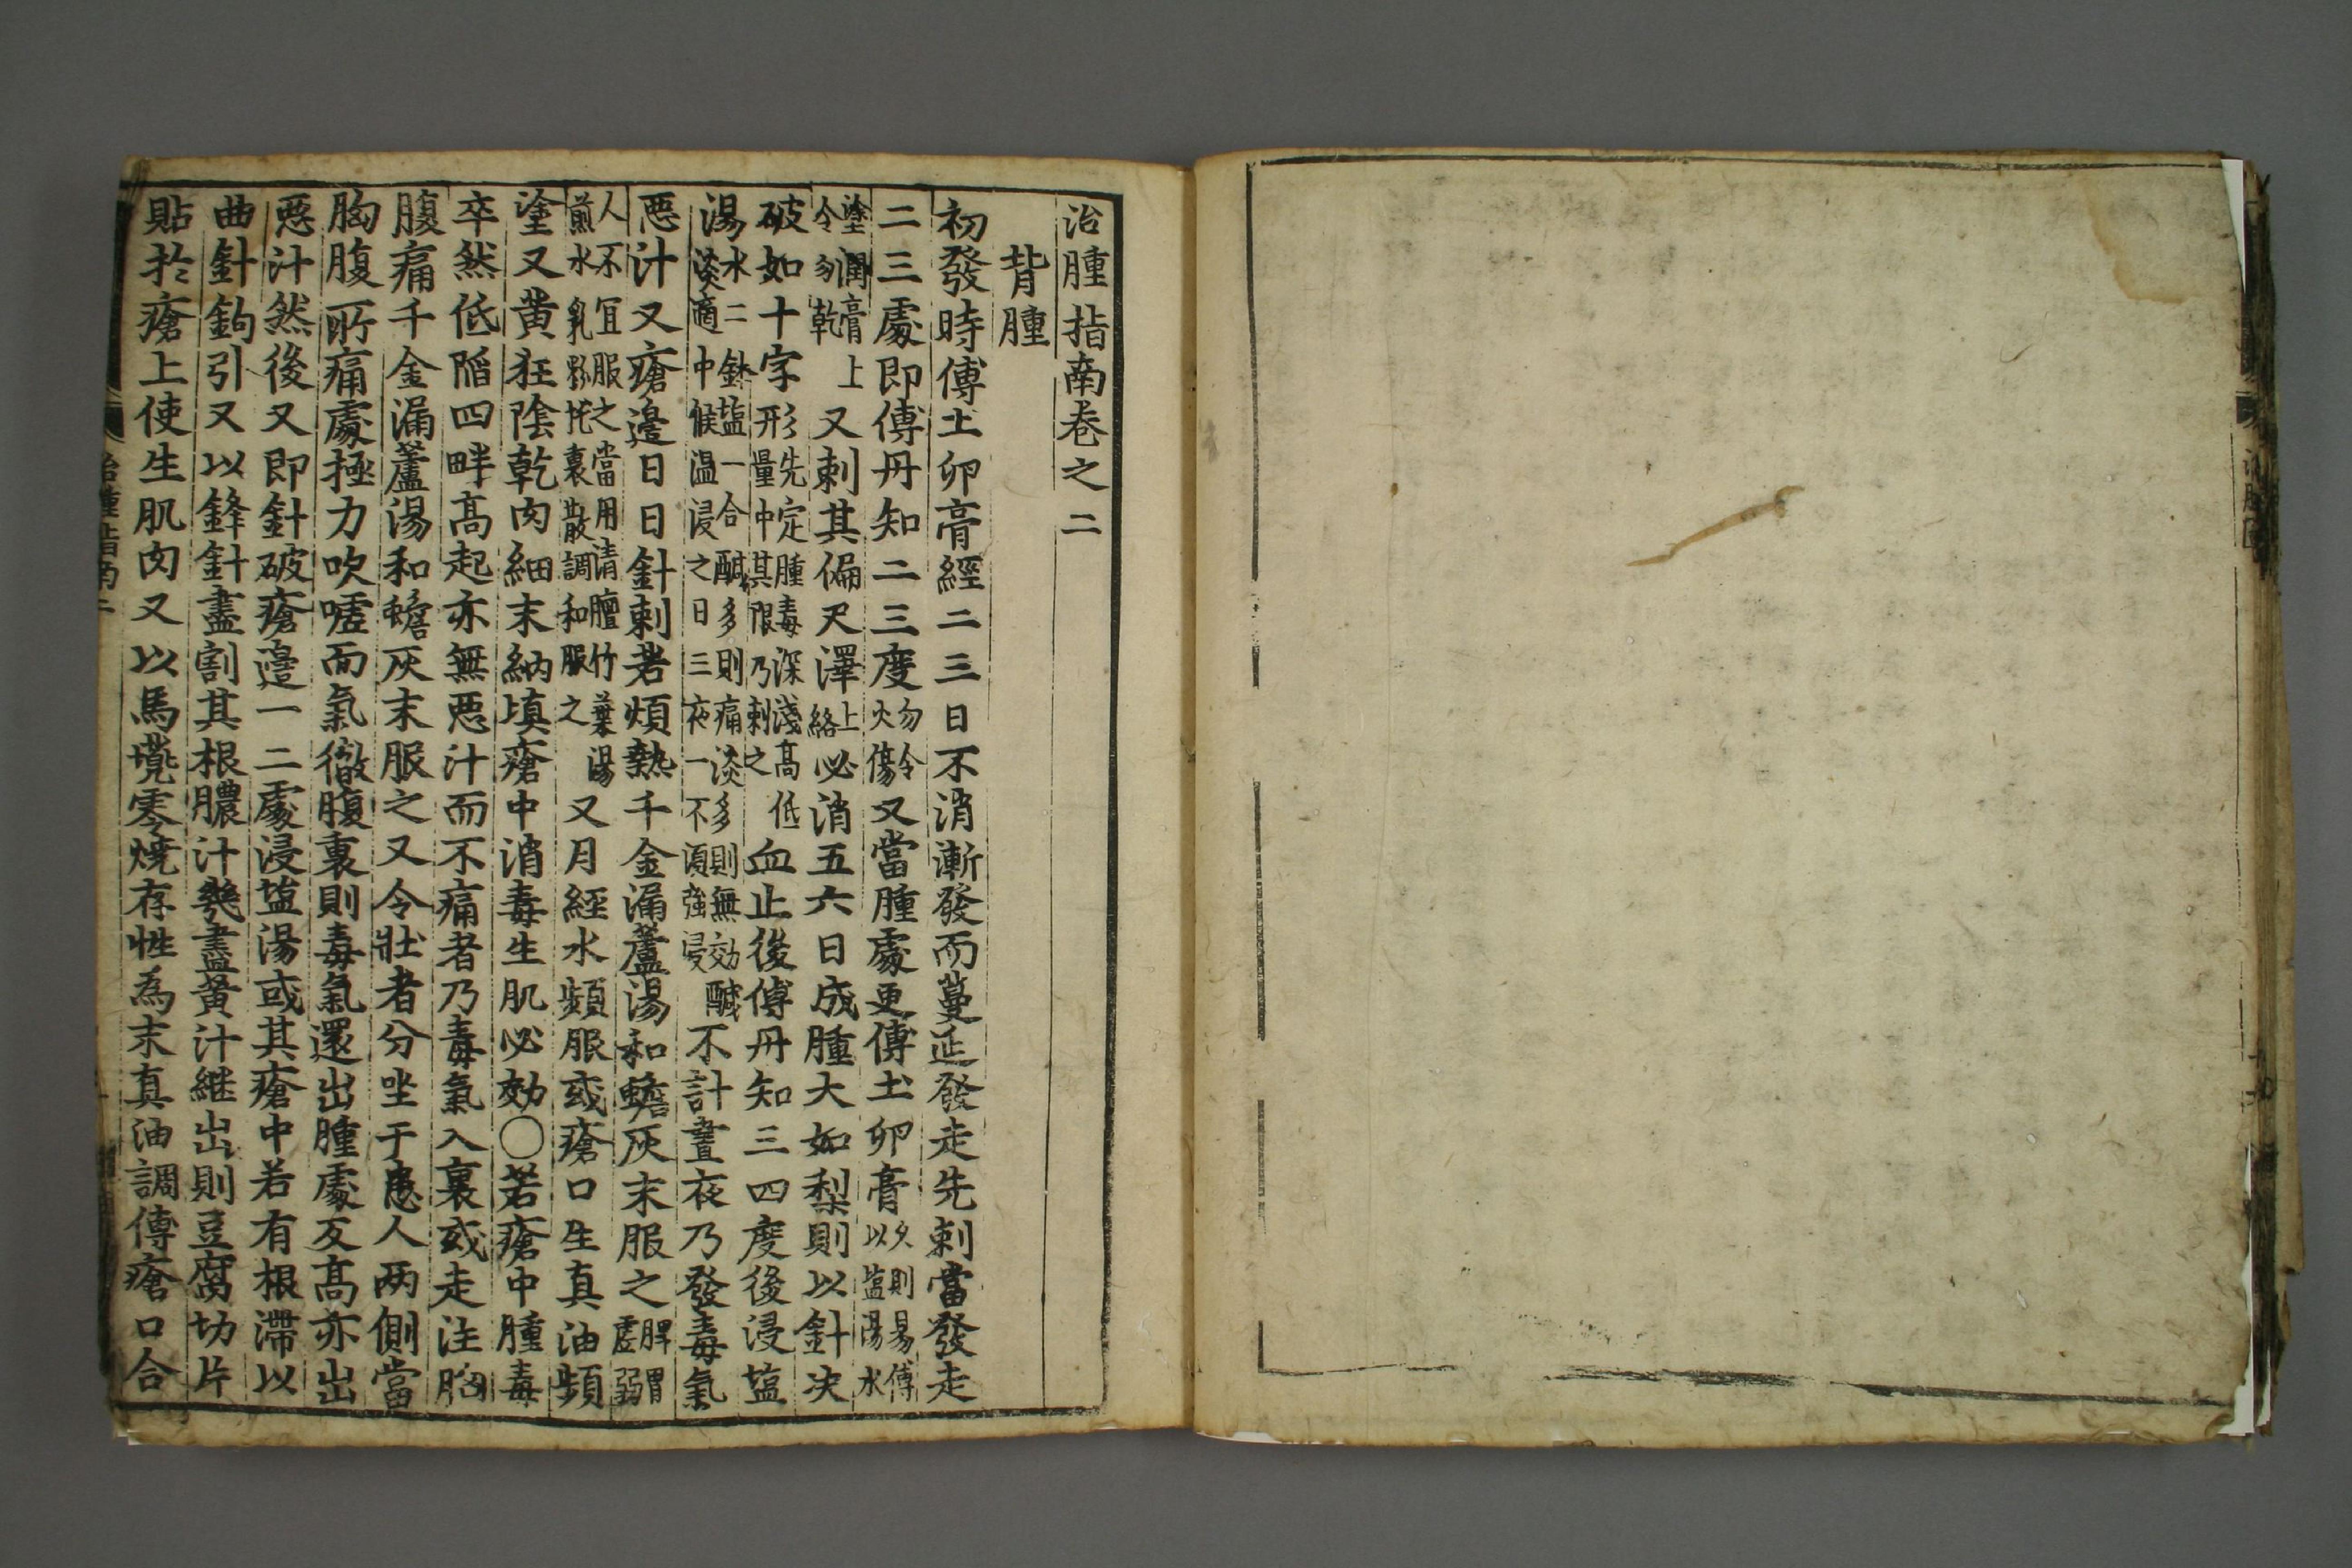 治腫指南卷之二
背腫
初發時傅土卵膏經二三日不消漸發而蔓延發走先刺當發走
二三處即傅丹知二三度勿令火傷又當腫處更傅土卵膏久則易傅以塩湯水
塗潤膏上令勿乾又刺其偏尺澤上絡必消五六日成腫大如梨則以針决
破如十字形先定腫毒深淺高低量中其限乃刺之血止後傅丹知三四度後浸塩
湯水二鉢塩一合醎多則痛淡多則無効醎淡適中候温浸之日三夜一不須強浸不計晝夜乃發毒氣
惡汁又瘡邉日日針刺若煩熱千金漏蘆湯和蟾灰末服之脾胃虛弱
人不宜服之當用清膻竹葉湯煎水乳彩托裏散調和服之又月經水頻服或瘡口生真油頻
塗又黄狂陰乾肉細末納填瘡中消毒生肌必効〇若瘡中腫毒
卒然低陷四畔高起亦無惡汁而不痛者乃毒氣入裏或走注胸
腹痛千金漏蘆湯和蟾灰末服之又令壯者分坐于患人两側當
胸腹所痛處極力吹嘘而氣徹腹裏則毒氣還出腫處反高亦出
惡汁然後又即針破瘡邉一二處浸塩湯或其瘡中若有根滯以
曲針鉤引又以鋒針盡割其根膿汁幾盡黄汁継出則豆腐切片
貼於瘡上使生肌肉又以馬𡏖零燒存性為末真油調傅瘡口合
治腫指南二